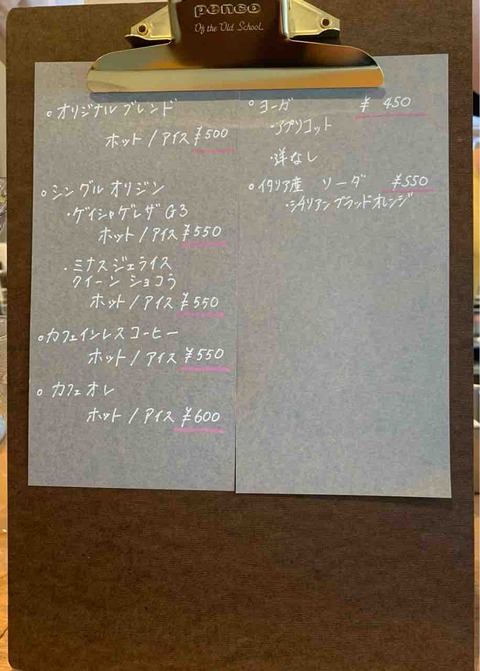 penco
Of the Old School.
○オリジナルブレンド
ホット/アイス ¥500
○シングルオリジン
・ゲイシャゲレザG3
ホット/アイス ¥550
・ミナスジェライス
クイーン ショコラ
ホット/アイス ¥550
○カフェインレスコーヒー
ホット/アイス ¥550
○カフェオレ
ホット/アイス ¥600
○ヨーダ ¥450
・アプリコット
・洋なし
○イタリア産 ソーダ ¥550
・シチリアンブラッドオレンジ